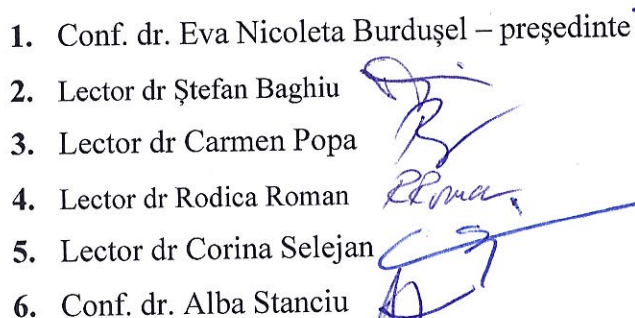 1. Conf. dr. Eva Nicoleta Burdușel – președinte
2. Lector dr Ștefan Baghiu
3. Lector dr Carmen Popa
4. Lector dr Rodica Roman RRoman
5. Lector dr Corina Selejan
6. Conf. dr. Alba Stanciu